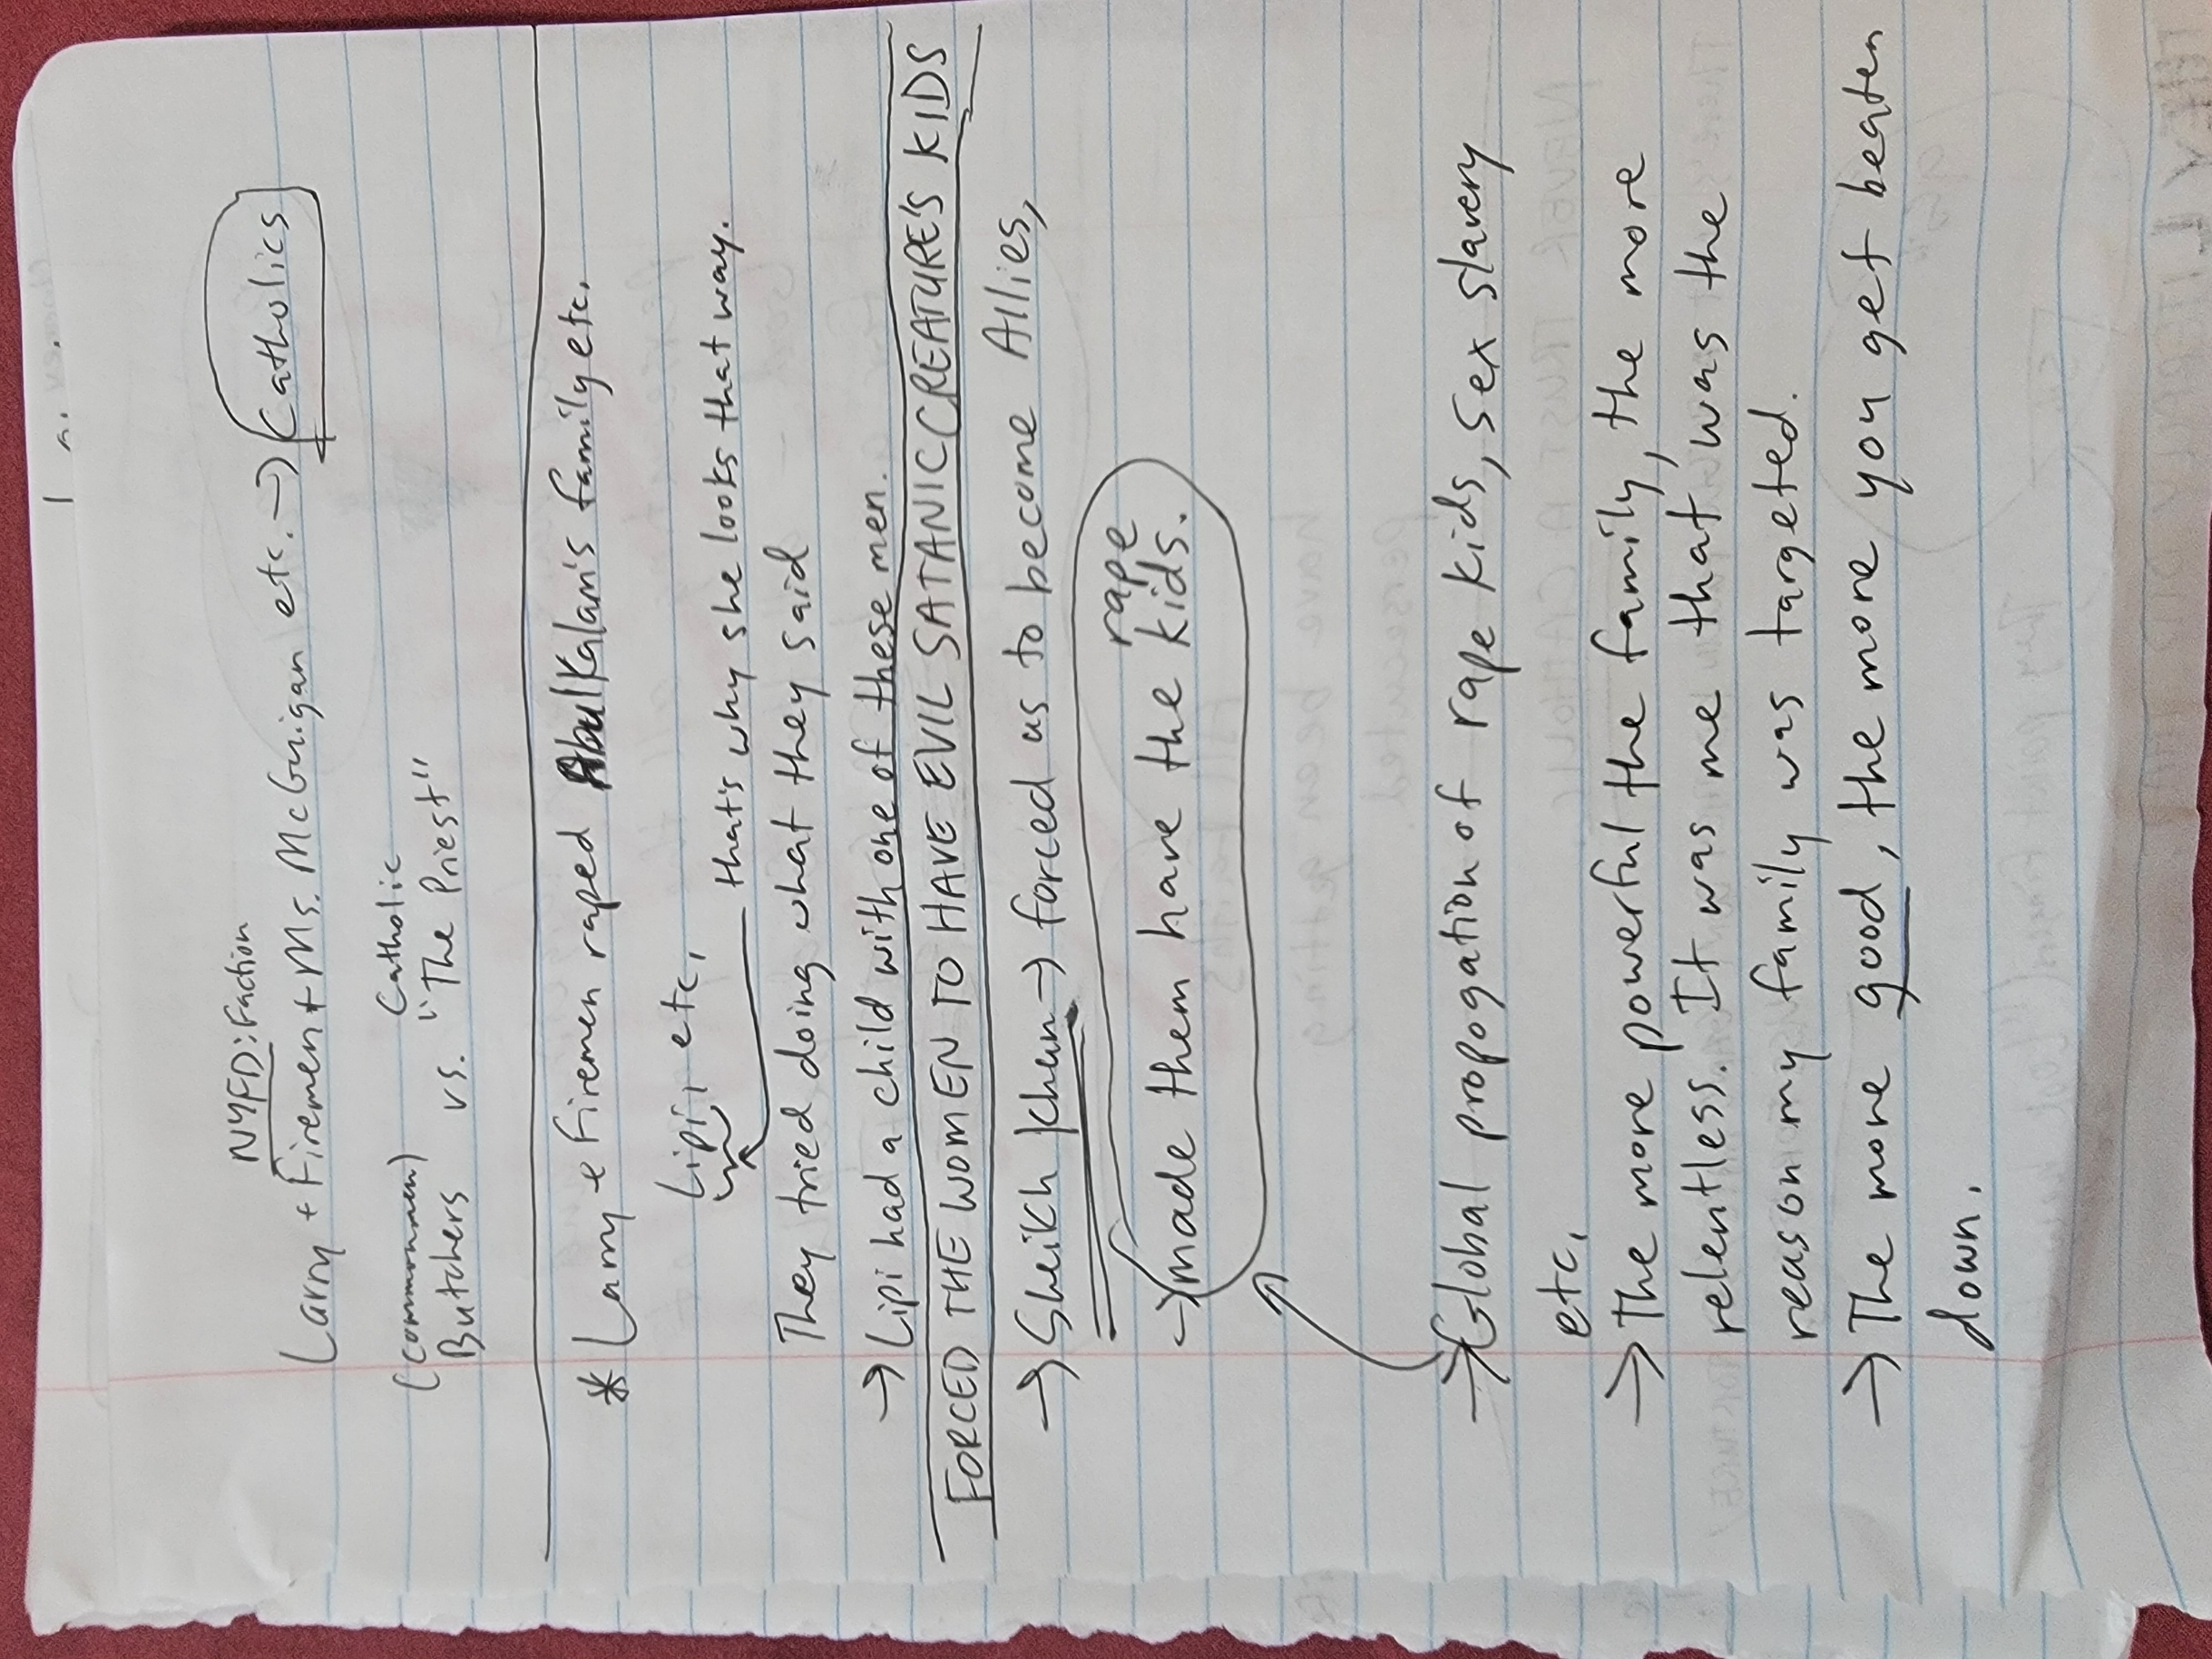 NYFD: Faction
Larry + Firemen + Ms. McGuigan etc. → Catholics
(commonmen) Catholic
Butchers vs. "The Priest"
* Larry & Firemen raped AbulKalam's family etc.
Lipi, etc,
that's why she looks that way.
They tried doing what they said
→ Lipi had a child with one of these men.
FORCED THE WOMEN TO HAVE EVIL SATANIC CREATURE'S KIDS
→ Sheikh Khan → forced us to become Allies,
rape
→ made them have the kids.
→ Global propogation of rape kids, sex slavery
etc,
→ The more powerful the family, the more
relentless. It was me that was the
reason my family was targeted.
→ The more good, the more you get beaten
down.